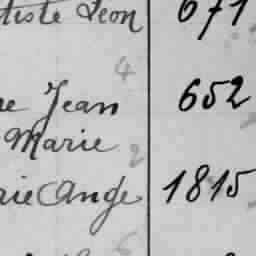 tiste Leon 671
4
re Jean 652
Marie 2
rie Ange 1815